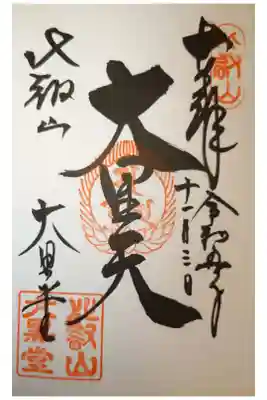 奉拝
令和元年
十一月三日
大黒天
比叡山
大黒堂
比叡山
比叡山
大黒堂